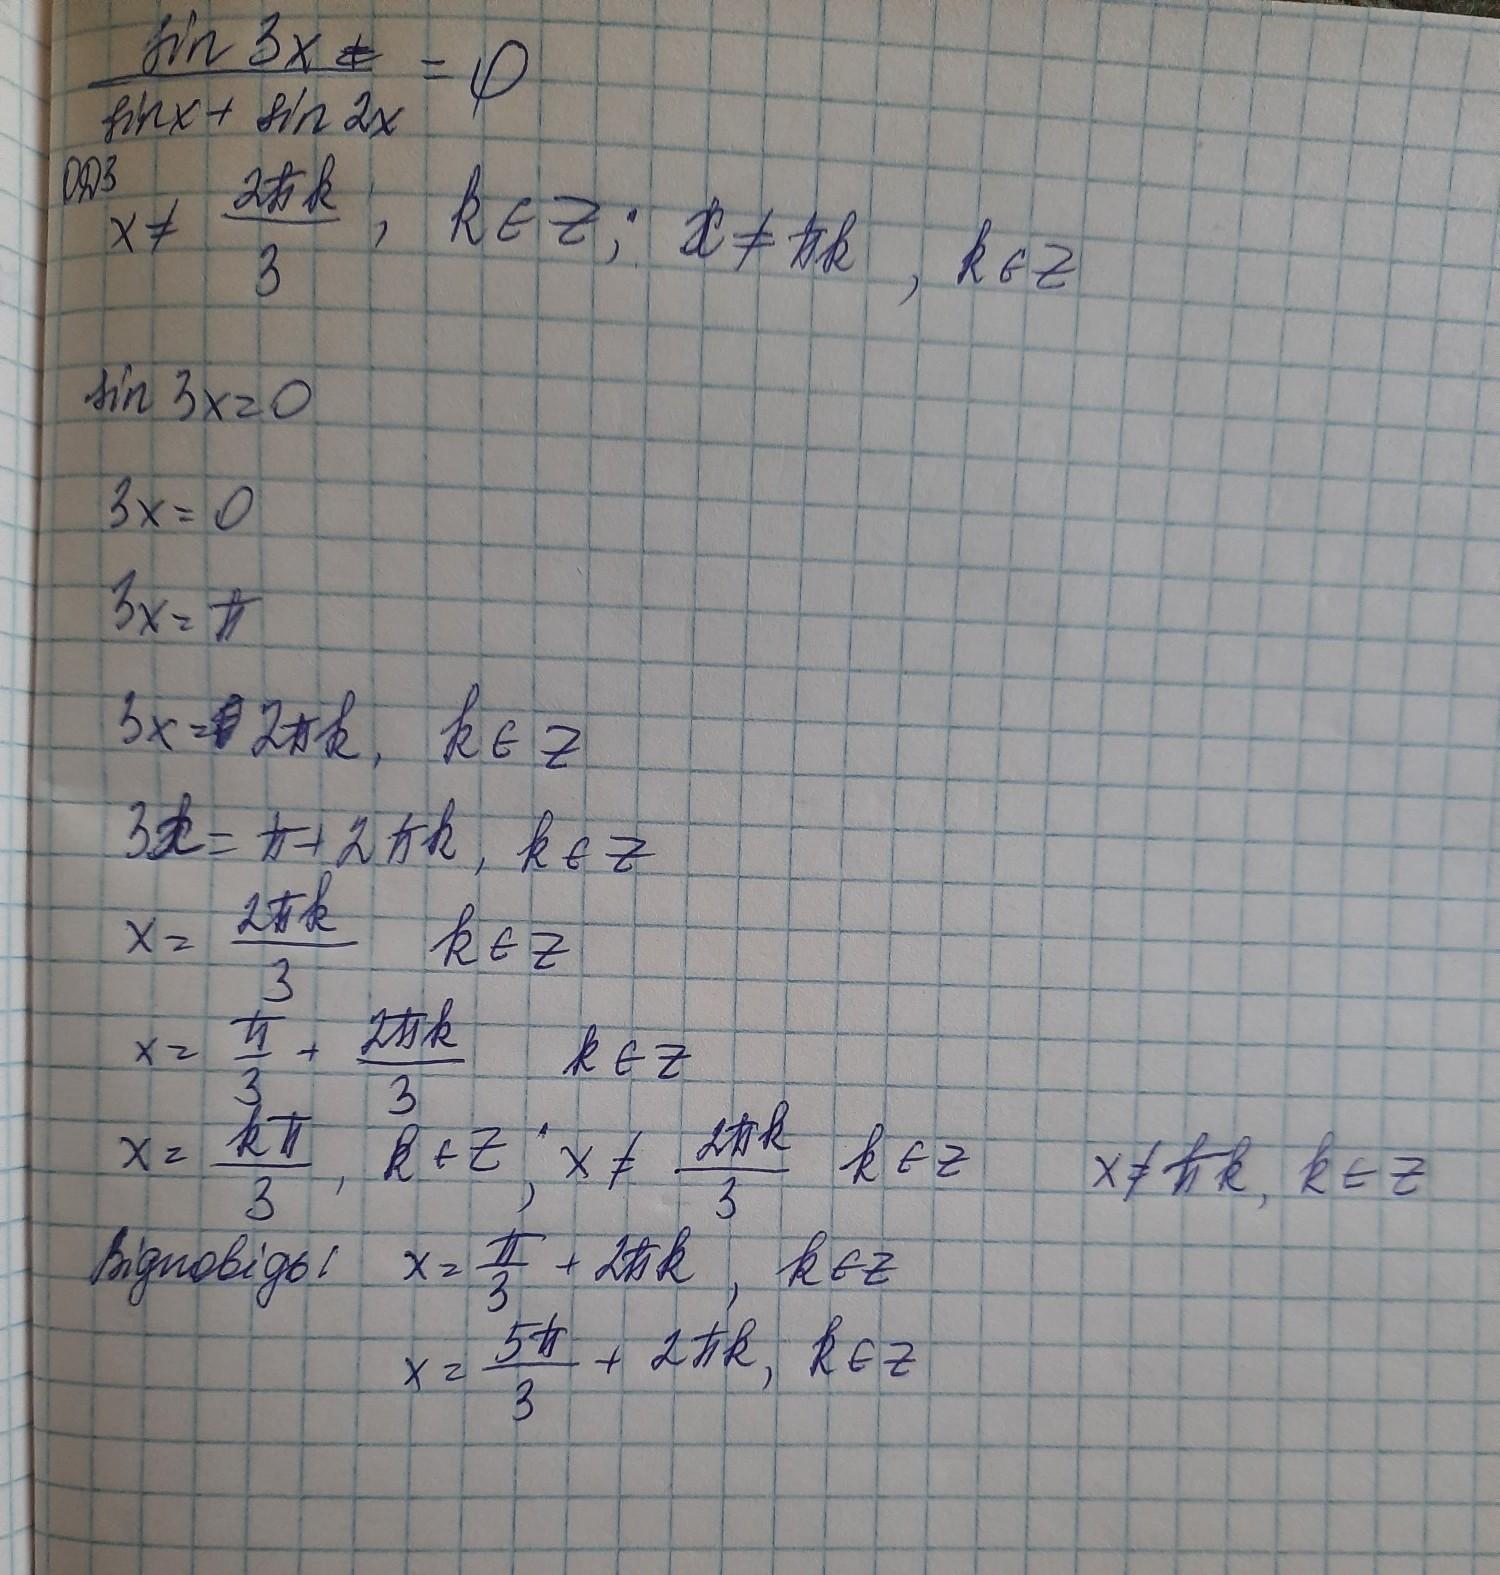 sin 3x
sinx + sin 2x
= 0
ОДЗ
x ≠ 2πk/3, k ∈ Z; x ≠ πk, k ∈ Z
sin 3x = 0
3x = 0
3x = π
3x = 2πk, k ∈ Z
3x = π + 2πk, k ∈ Z
x = 2πk/3 k ∈ Z
x = π/3 + 2πk/3 k ∈ Z
x = kπ/3, k ∈ Z; x ≠ 2πk/3 k ∈ Z x ≠ πk, k ∈ Z
Відповідь: x = π/3 + 2πk, k ∈ Z
x = 5π/3 + 2πk, k ∈ Z